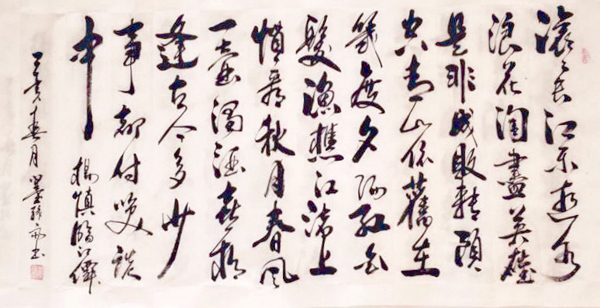 滚〻长江东逝水
浪花淘盡英雄
是非成败转头
空青山依舊在
几度夕阳红白
髮漁樵江渚上
惯看秋月春风
一壶浊酒喜相
逢古今多少
事都付笑谈
中
楊慎臨江僊
壬寅春月
书